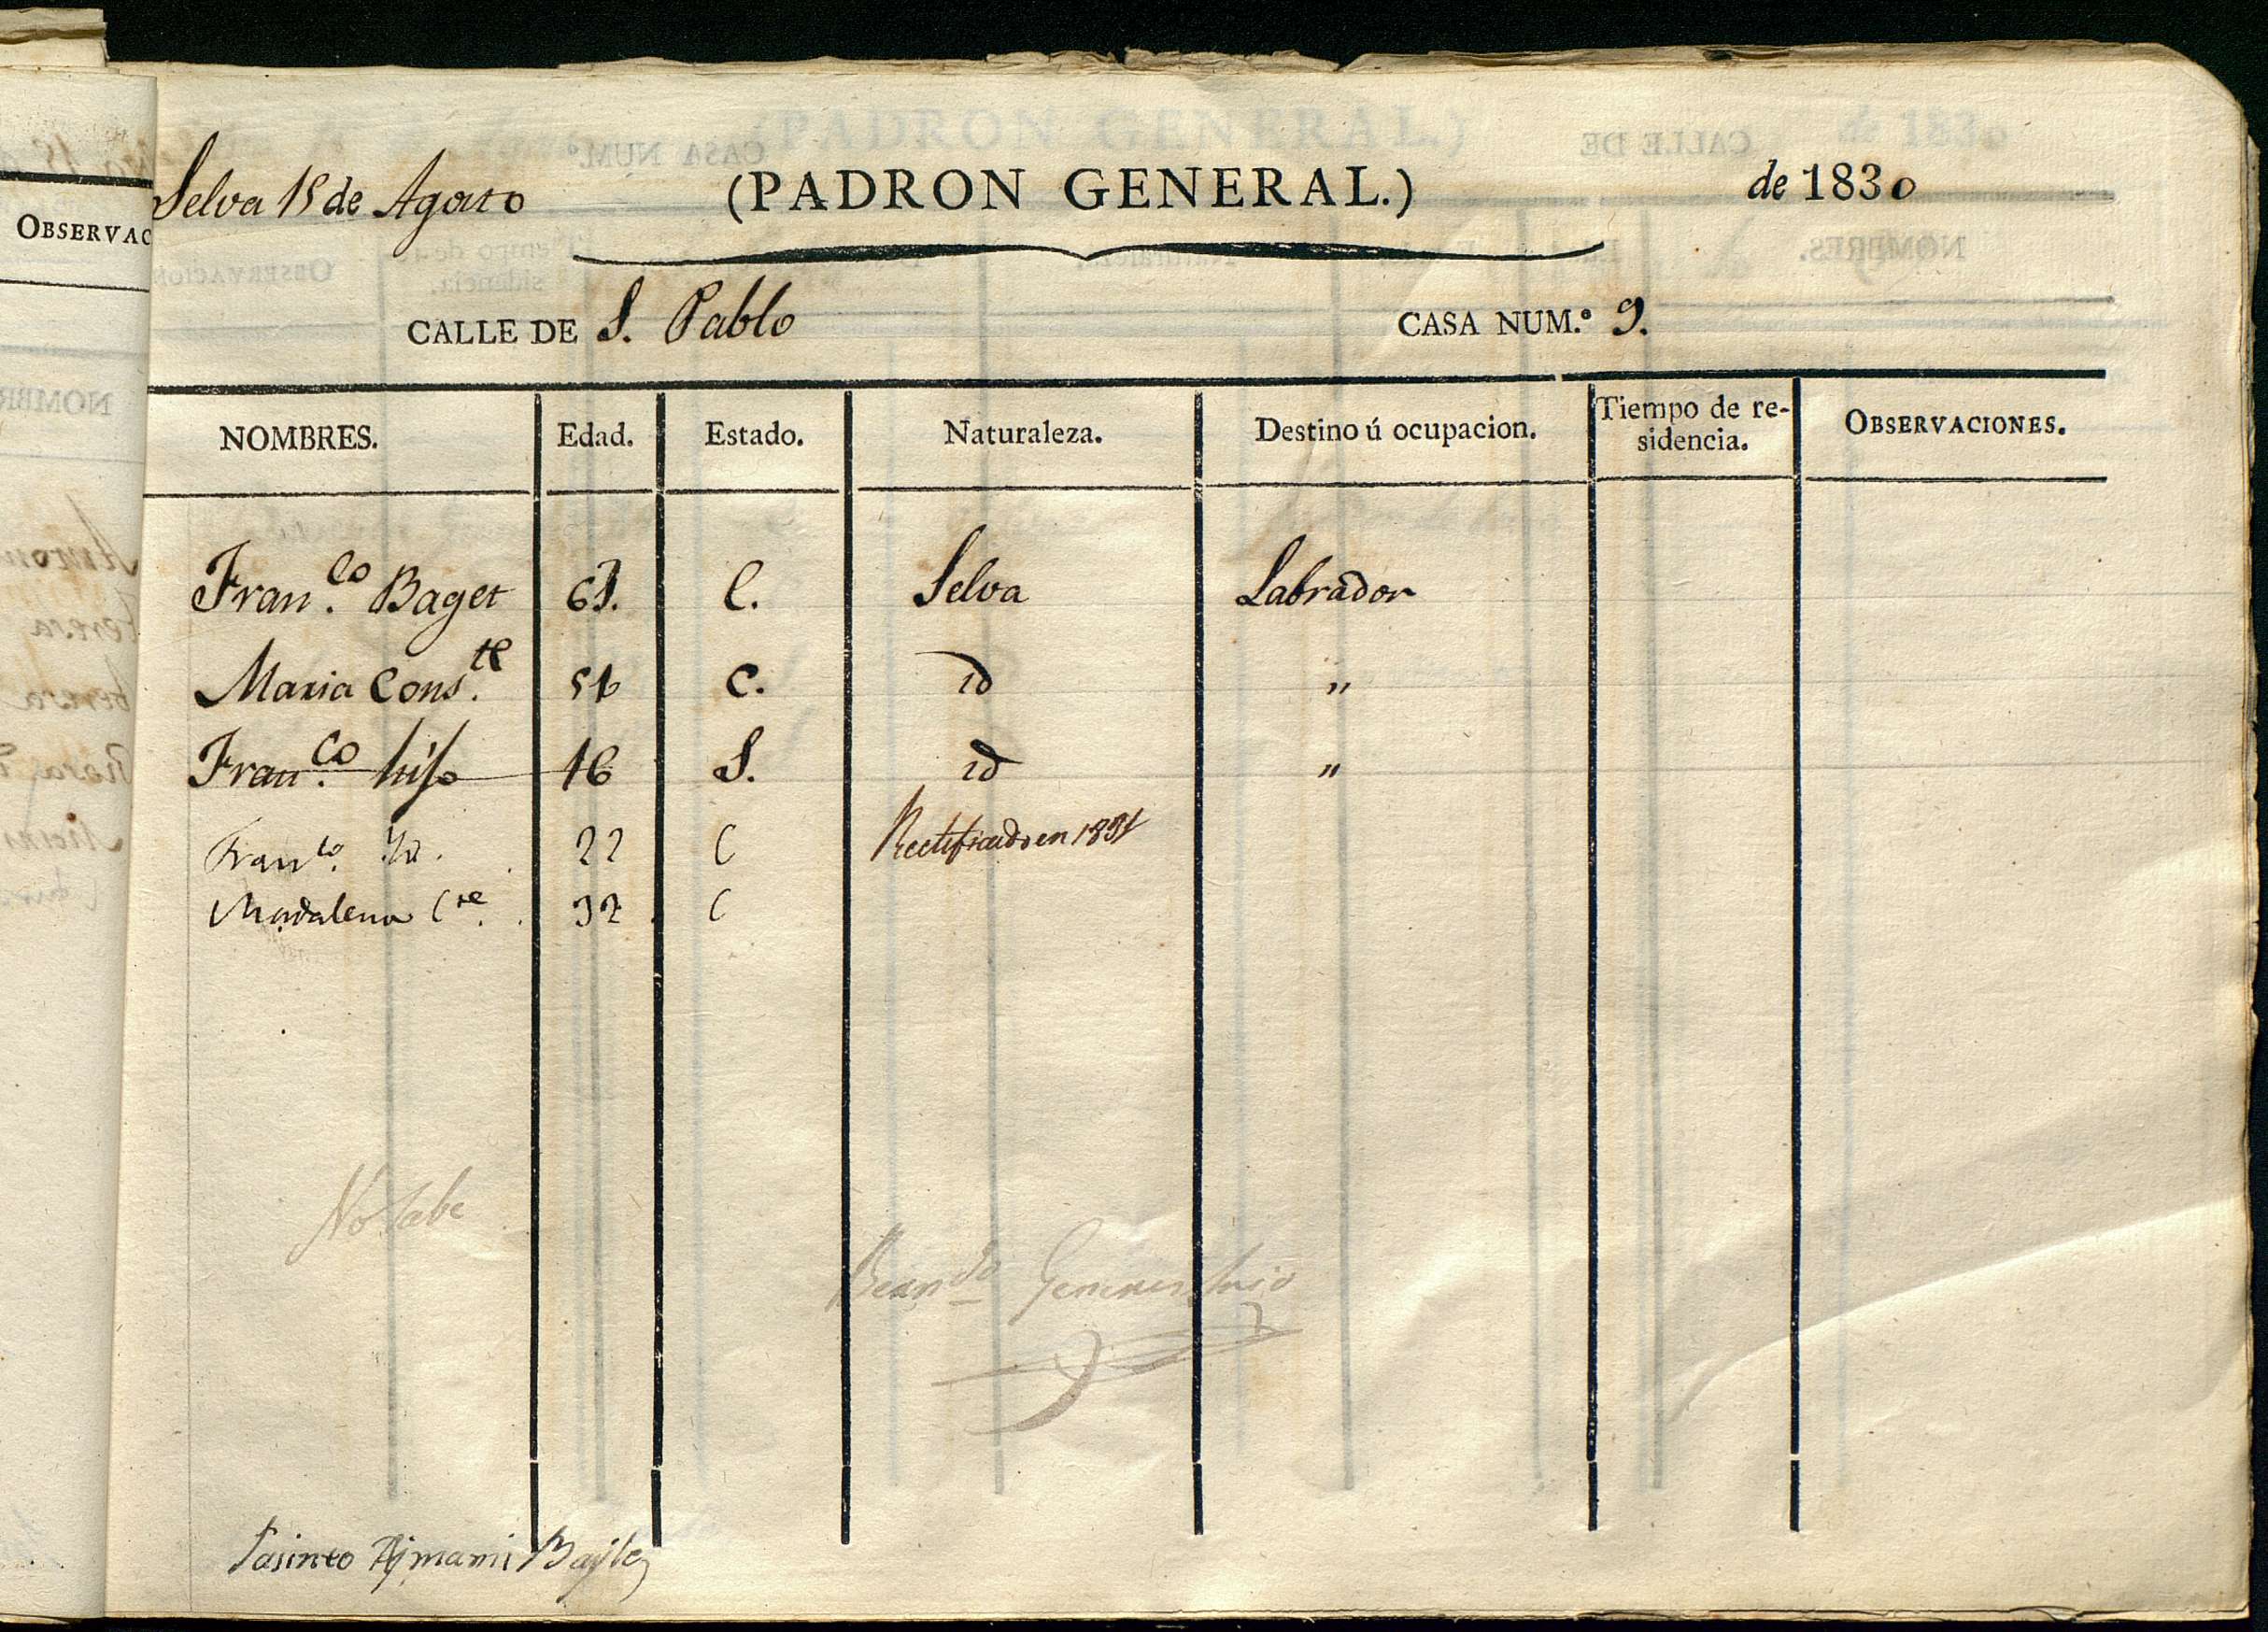 Selva 15 de Agosto (PADRON GENERAL.) de 1830
CALLE DE S. Pablo CASA NUM.º 9.
NOMBRES. Edad. Estado. Naturaleza. Destino ú ocupacion. Tiempo de re-
sidencia. OBSERVACIONES.
Fran.co Baget C. Selva Labrador
Maria Cons.te C. id "
Fran.co hijo 16 S. id "
Fran.co 22 C Rectificado en 1831
Madalena C.te 32 C
No sabe
Jasinto Bayle
OBSERVAC